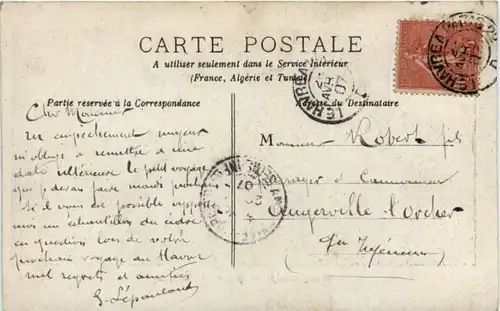 CARTE POSTALE
A utiliser seulement dans le Service Intérieur
(France, Algérie et Tunisie)
Partie réservée à la Correspondance
Adresse du Destinataire
Cher Monsieur
un empêchement majeur
m'oblige à remettre à une
date ultérieure le petit voyage
que je devais faire mais
si il vous est possible
moi un échantillon du cidre
en question lors de votre
prochain voyage au Havre
mil regrets et amitiés
Monsieur Robert fils
à
Angerville l'Orcher
Seine Inférieure
LE HAVRE A
AVRIL
07
LE HAVRE A PARIS